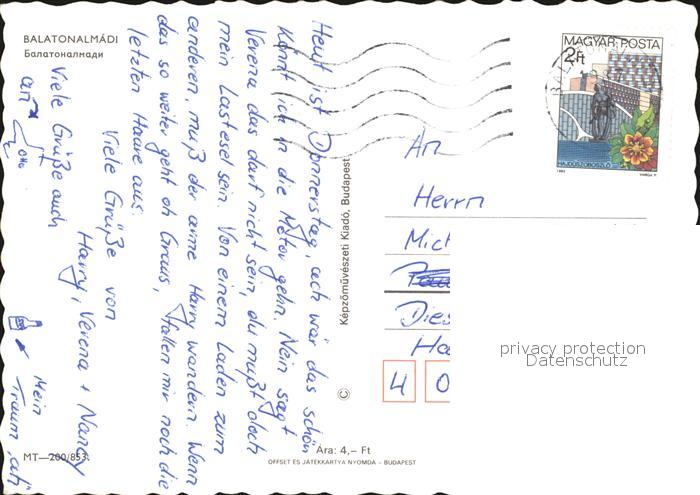 BALATONALMÁDI
Балатоналмади
Heut ist Donnerstag, ach wär das schön
könnt ich in die Metor gehn. Nein sagt
Verena das darf nicht sein, du mußt doch
mein Lastesel sein. Von einem Laden zum
anderen, muß der arme Harry wandern. Wenn
das so weiter geht oh Graus, fallen mir noch die
letzten Haare aus.
Viele Grüße von
Harry, Verena + Nancy
Viele Grüße auch
an
Mein
Traum
MT—200/853.
Képzőművészeti Kiadó, Budapest
©
Ára: 4,– Ft
OFFSET ÉS JÁTÉKKÁRTYA NYOMDA – BUDAPEST
MAGYAR POSTA
2Ft
HAJDÚSZOBOSZLÓ
1983
VARGA P.
An
Herrn
Mich
Dies
Ha
4 0
privacy protection
Datenschutz